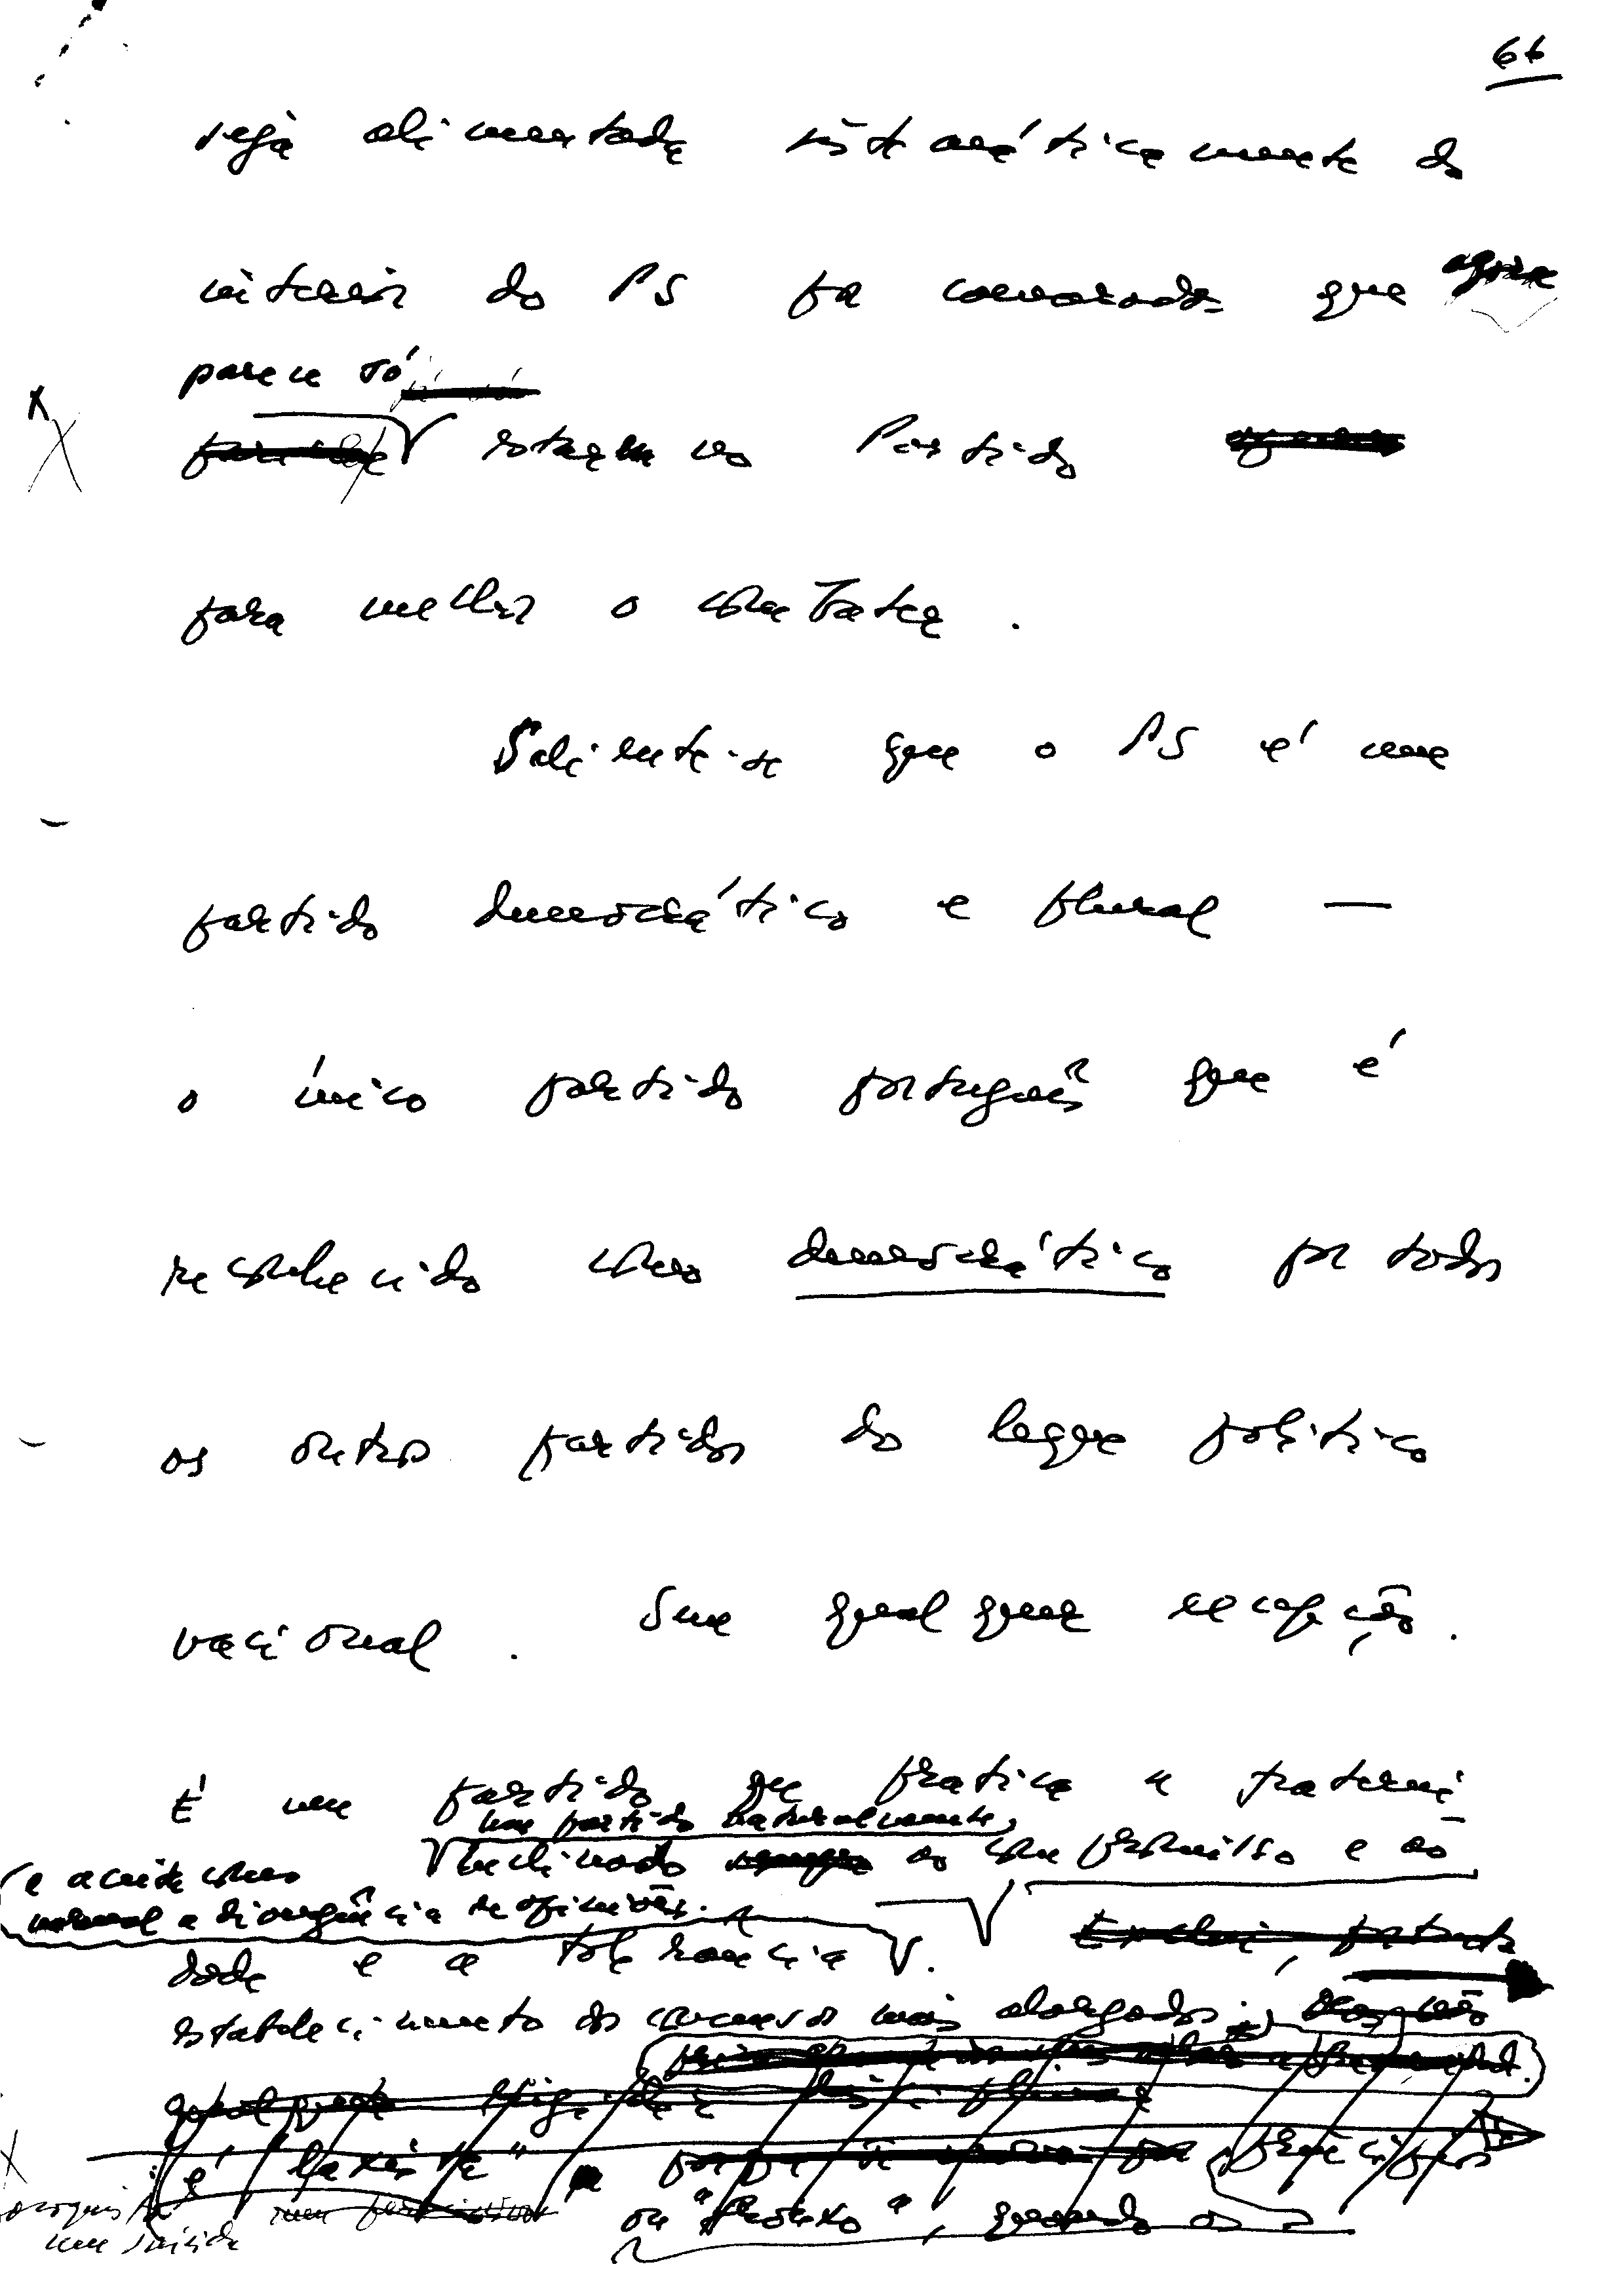 66
seja alimentada sistemáticamente do
interior do PS por camaradas que agora
parece só
estarem no Partido
para melhor o combater.
Saliente-se que o PS é um
partido democrático e plural —
o único partido português que é
reconhecido como democrático por todos
os outros partidos do leque político
nacional. Sem qualquer excepção.
É um partido que pratica a fraterni-
um partido naturalmente,
inclinado ao compromisso e ao
e aceita como
normal a divergência de opiniões.
dade e a tolerância.
estabelecimento de consensos mais alargados;
é "laxista"
princípios
ou "frouxo", quando os